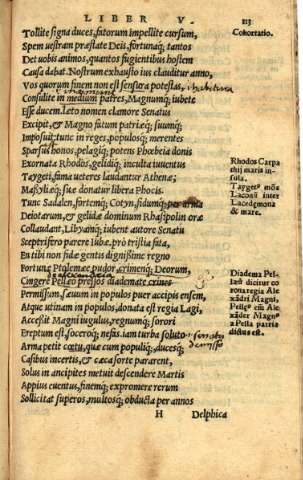 LIBER V. 113
Tollite signa duces, fatorum impellite cursum, Cohortatio.
Spem uestram præstate Deis, fortunaq́; tantos
Det uobis animos, quantos fugientibus hostem
Causa dabat. Nostrum exhausto ius clauditur anno,
Vos quorum finem non est sensura potestas,
Consulite in medium patres, Magnumq́; iubete
Esse ducem. Læto nomen clamore Senatus
Excipit, & Magno fatum patriæq́; suumq́;
Imposuit: tunc in reges, populosq́; merentes
Sparsus honos, pelagiq́; potens Phœbeia donis
Exornata Rhodos, gelidiq́; inculta iuuentus
Taygeti, fama ueteres laudantur Athenæ;
Massylieq́; suæ donatur libera Phocis.
Tunc Sadalen, fortemq́; Cotyn, fidumq́; per arma
Deiotarum, & gelidæ dominum Rhasipolin oræ
Collaudant, Libyamq́; iubent autore Senatu
Sceptrifero parere Iubæ. prò tristia fata,
En tibi non fidæ gentis dignissime regno
Fortunæ Ptolemæe pudor, crimenq́; Deorum,
Cingere Pellæo pressos diademate crines
Permissum, sæuum in populos puer accipis ensem,
Atque utinam in populos, donata est regia Lagi,
Accessit Magni iugulus, regnumq́; sorori
Ereptum est, soceroq́; nefas. iam turba soluto
Arma petit cœtu, quæ cum populiq́; ducesq́;
Casibus incertis, & cæca sorte pararent,
Solus in ancipites metuit descendere Martis
Appius euentus, finemq́; expromere rerum
Sollicitat superos, multosq́; obducta per annos
H Delphica
Rhodos Carpa
thij maris in=
sula.
Taygetꝰ mõs
Laconũ inter
Lacedæmona
& mare.
Diadema Pel-
læũ dicitur co
rona regia Ale
xãdri Magni,